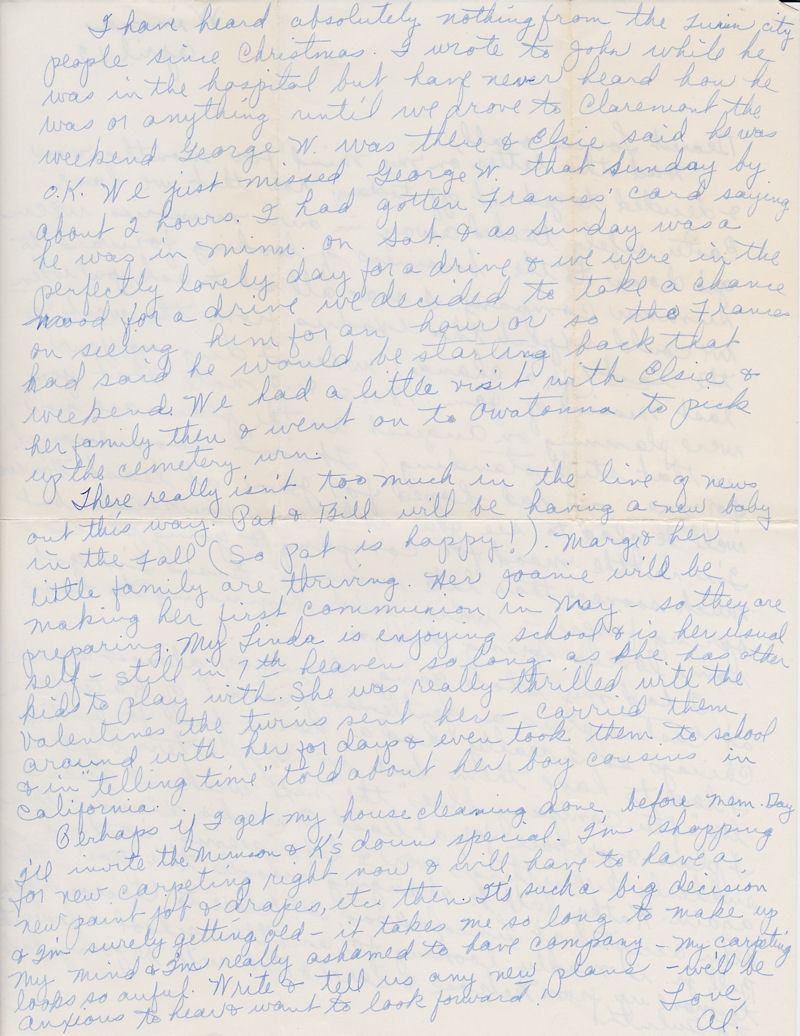 I have heard absolutely nothing from the Twin city
people since Christmas. I wrote to John while he
was in the hospital but have never heard how he
was or anything until we drove to Claremont the
weekend George W. was there & Elsie said he was
O.K. We just missed George W. that Sunday by
about 2 hours. I had gotten Frances' card saying
he was in Minn. on Sat. & as Sunday was a
perfectly lovely day for a drive & we were in the
mood for a drive we decided to take a chance
on seeing him for an hour or so tho Frances
had said he would be starting back that
weekend. We had a little visit with Elsie &
her family then & went on to Owatonna to pick
up the cemetery urn.
There really isn't too much in the live of news
out this way. Pat & Bill will be having a new baby
in the Fall (So Pat is happy!). Marg & her
little family are thriving. Her Joanie will be
making her first communion in May - so they are
preparing. My Linda is enjoying school & is her usual
self - still in 7th heaven so long as she has other
kids to play with. She was really thrilled with the
valentines the twins sent her - carried them
around with her for days & even took them to school
& in "telling time" told about her boy cousins in
California.
Perhaps if I get my housecleaning done before Mem. Day
I'll invite the Munson & K's down special. I'm shopping
for new carpeting right now & will have to have a
new paint job & drapes, etc. then. It's such a big decision
& I'm surely getting old - it takes me so long to make up
my mind & I'm really ashamed to have company - my carpeting
looks so awful. Write & tell us any new plans - we'll be
anxious to hear & want to look forward!
Love,
Al.